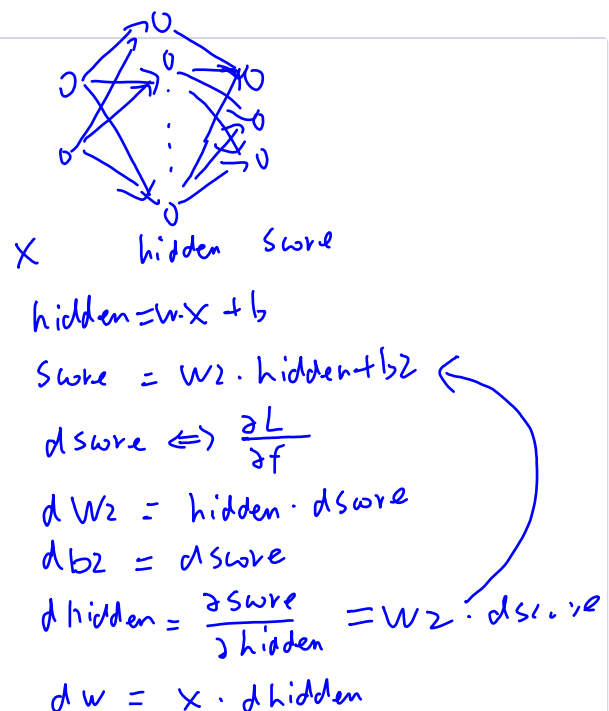 x hidden score
hidden = w.x + b
score = w2 . hidden + b2
dscore <=> ∂L/∂f
dw2 = hidden . dscore
db2 = dscore
dhidden = ∂score/∂hidden = w2 . dscore
dw = x . dhidden